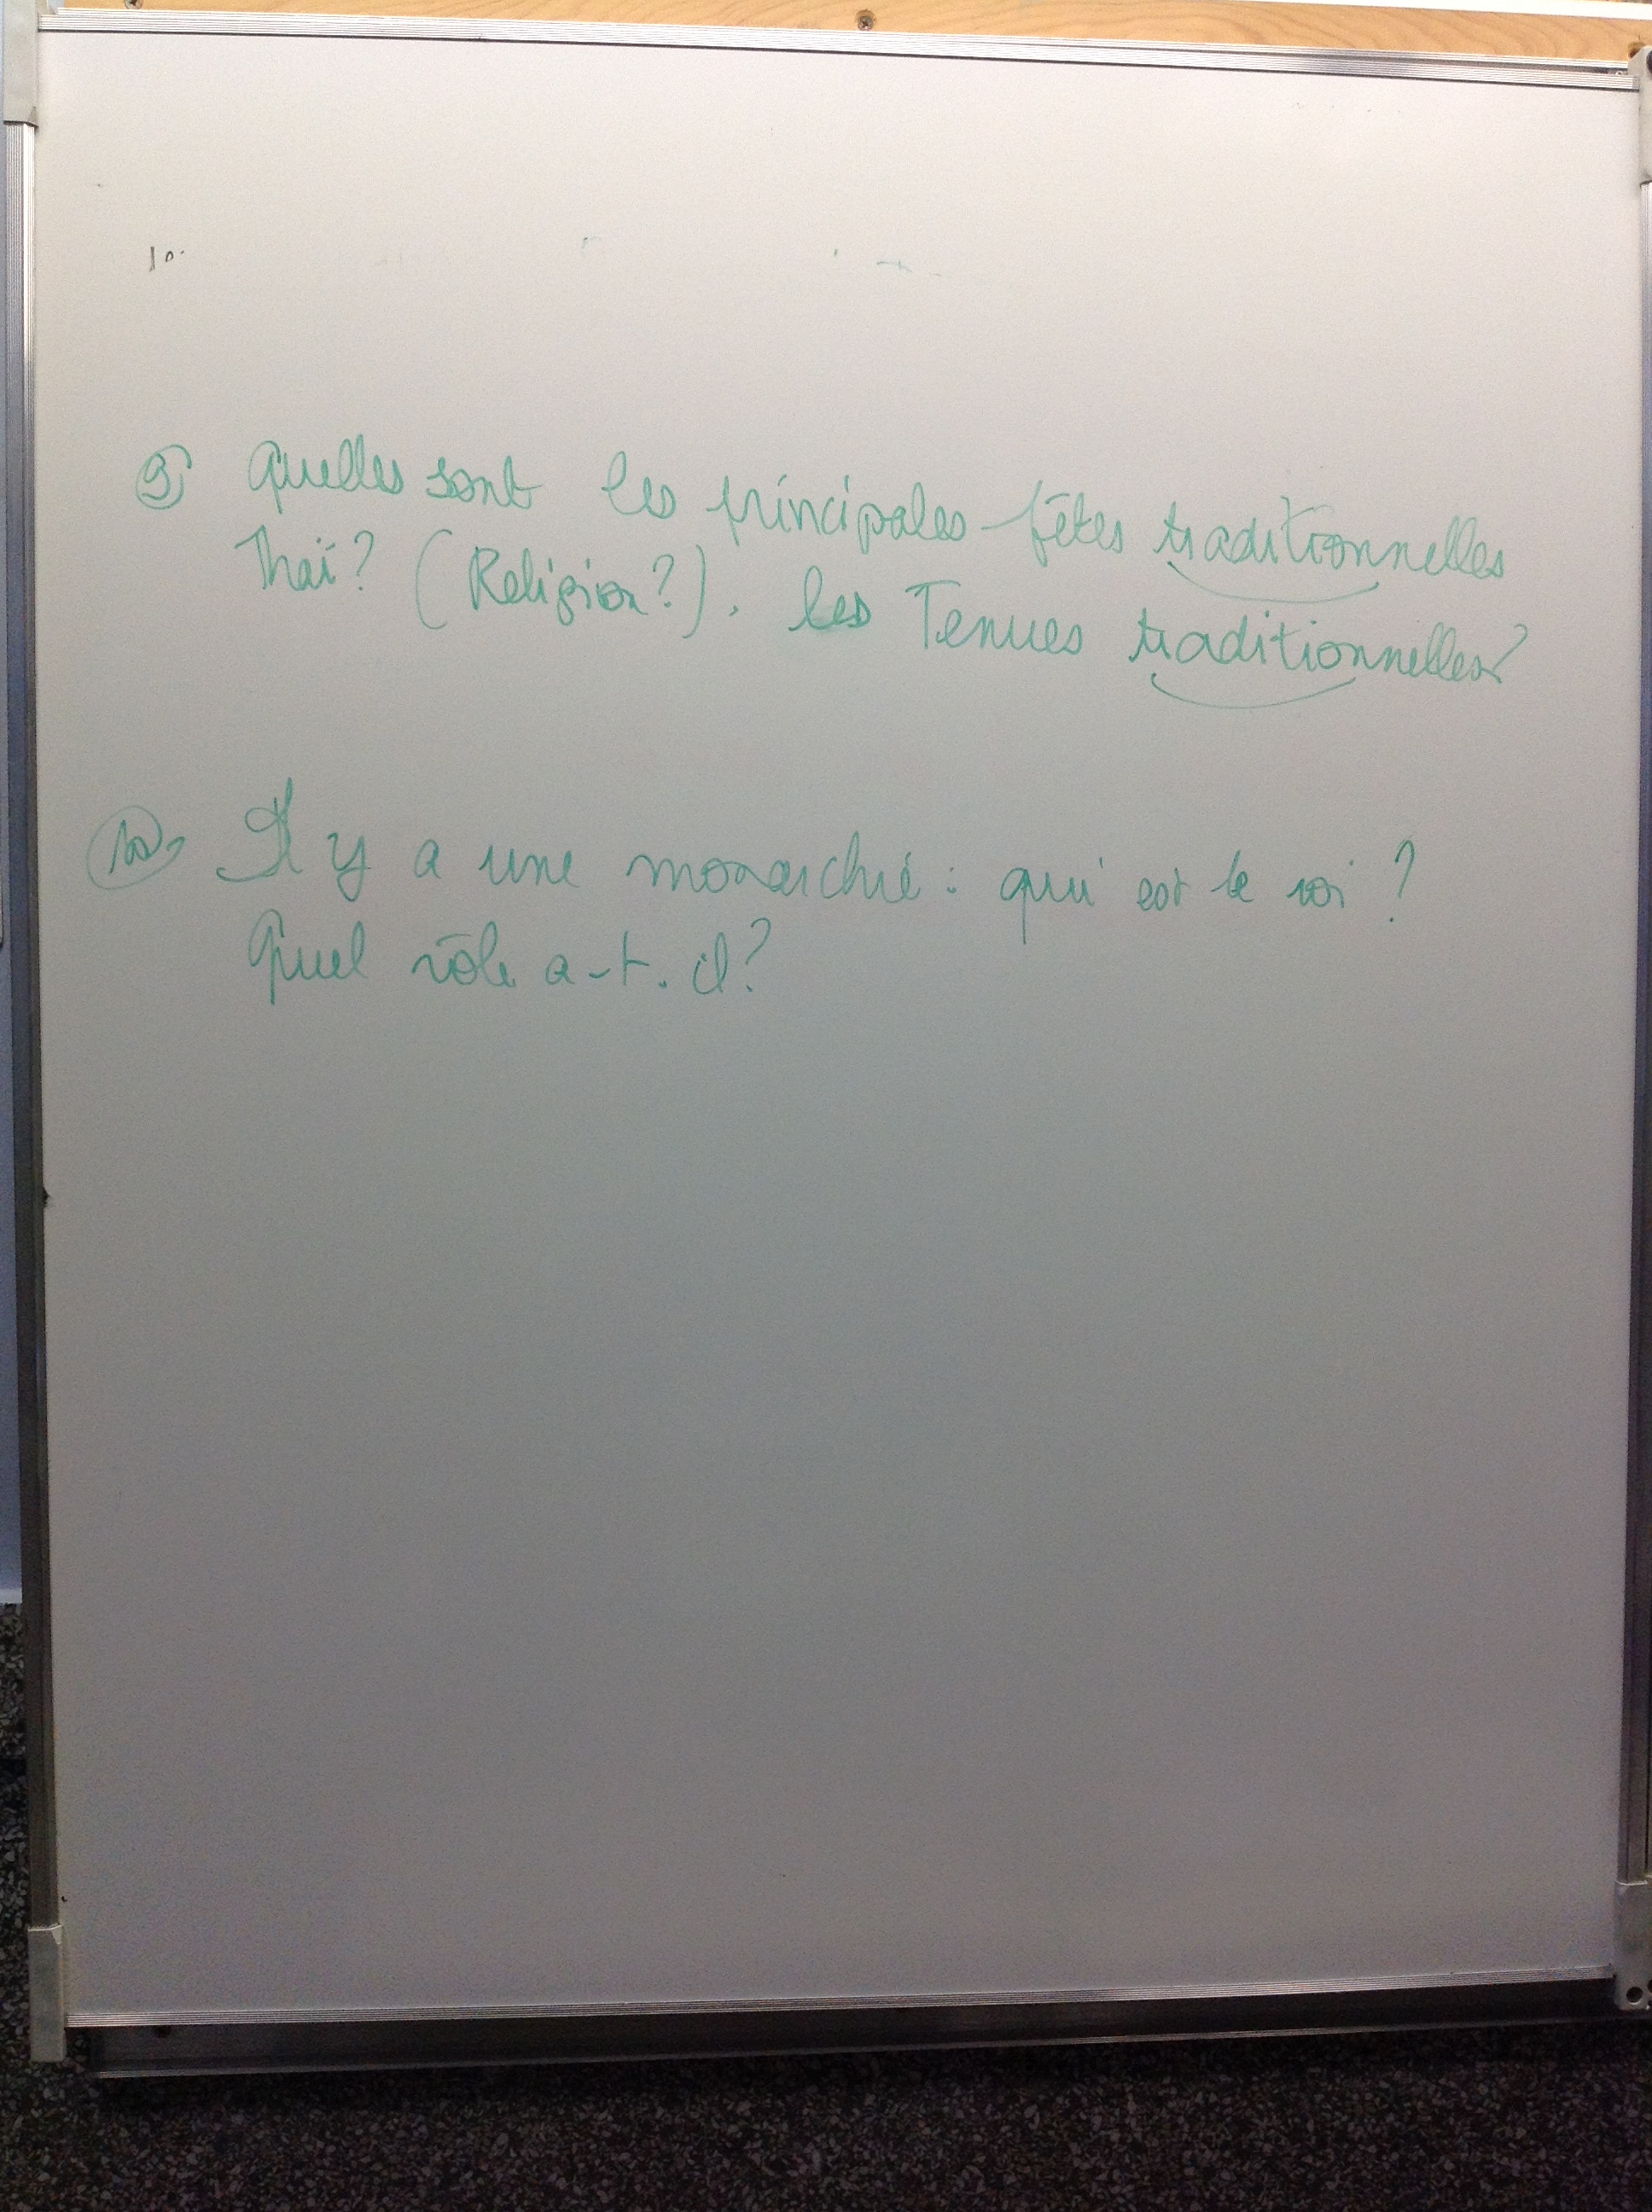 10.
9) Quelles sont les principales fêtes traditionnelles
Thaï? (Religion?). les Tenues traditionnelles?
10. Il y a une monarchie : qui est le roi ?
Quel rôle a-t.il?